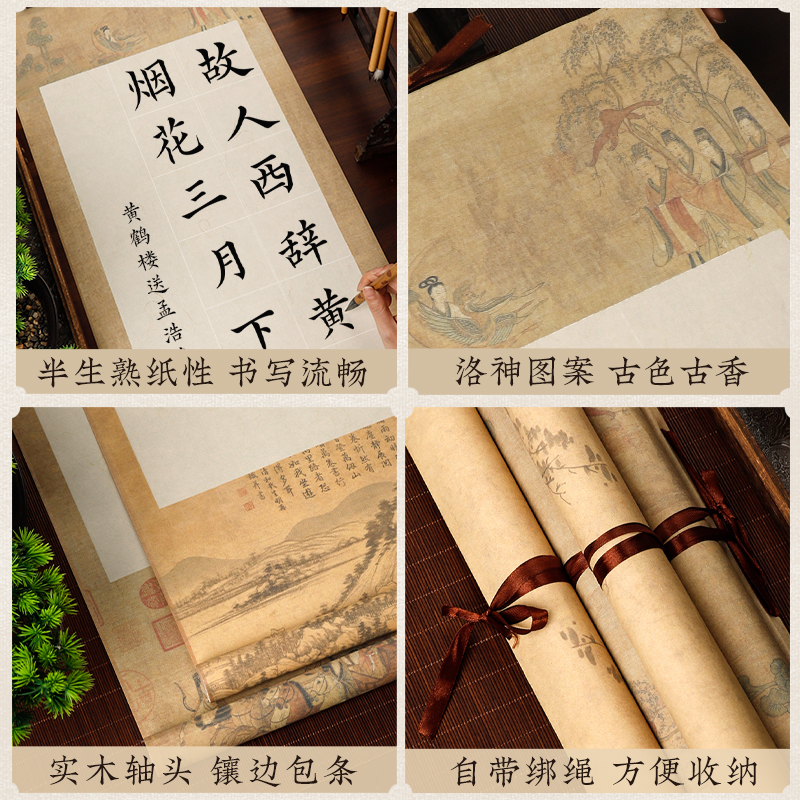 故人西辞黄
烟花三月下
黄鹤楼送孟浩
半生熟纸性 书写流畅
洛神图案 古色古香
实木轴头 镶边包条
自带绑绳 方便收纳